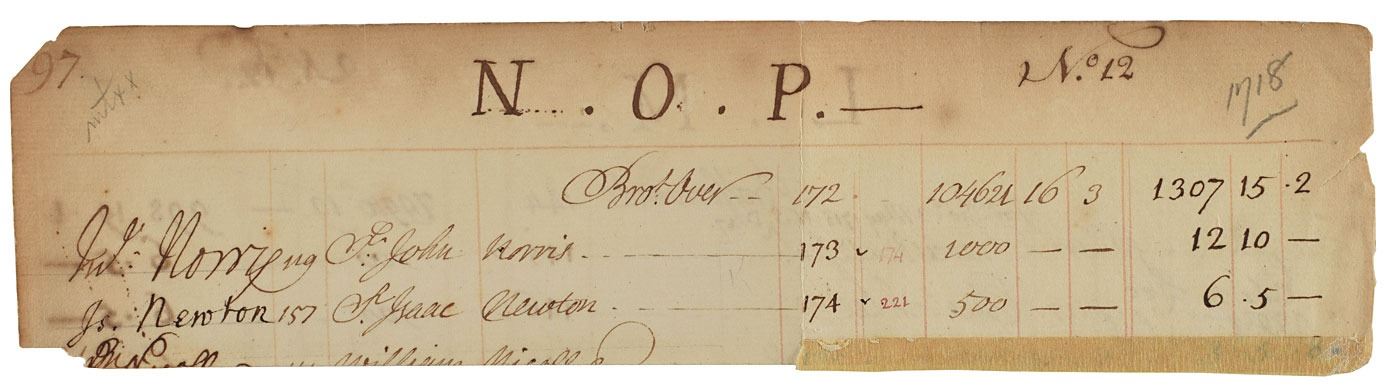 97
N . O . P. — N.º 12 1718
Bro.t Over -- 172 . 104621 16 3 1307 15 . 2
Jn.º Norris 119 S.r John Norris 173 174 1000 — — 12 10 —
Is. Newton 157 S.r Isaac Newton 174 221 500 — — 6 . 5 —
William Nicoll